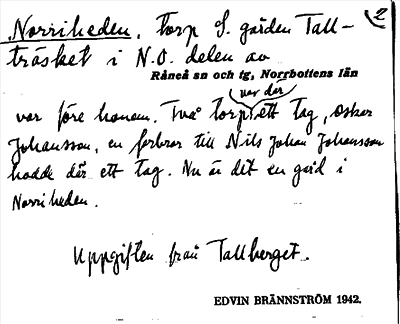 Norriheden, torp S. gården Tall- 2
träsket i N.O. delen av
Råneå sn och tg, Norrbottens län
var där
var före honom. Två torp, ett tag, Oskar
Johansson, en farbror till Nils Johan Johansson
hadde där ett tag. Nu är det en gård i
Norriheden.
Uppgiften från Tallberget.
EDVIN BRÄNNSTRÖM 1942.